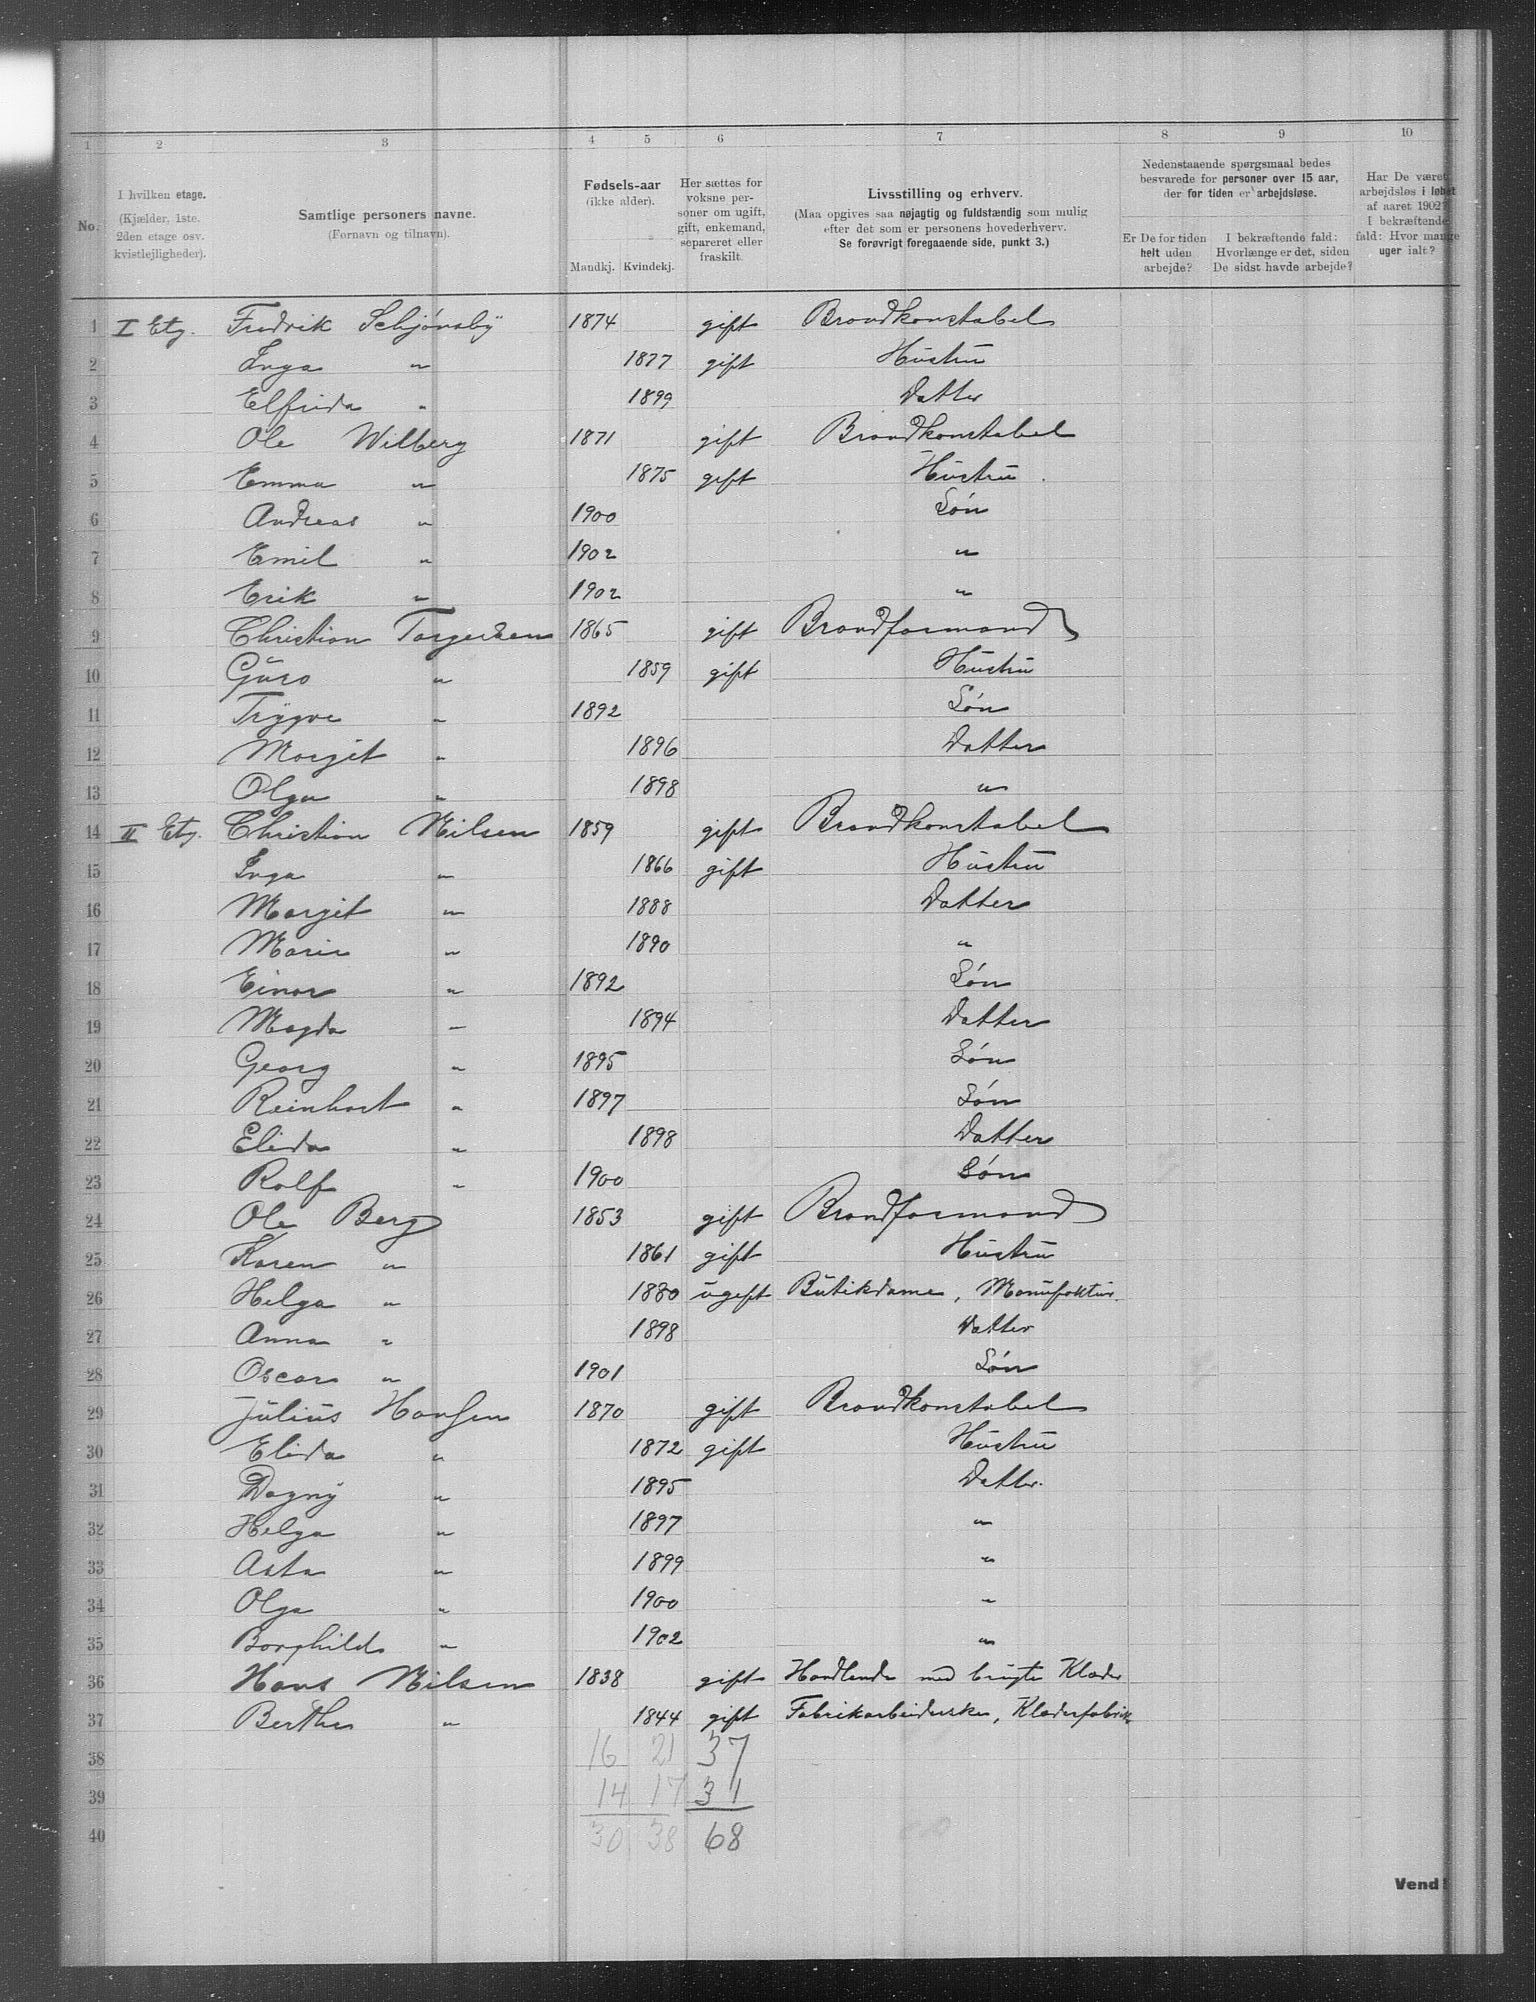 1 2 3 4 5 6 7 8 9 10
No. I hvilken etage. (Kjælder, 1ste. 2den etage osv. kvistlejligheder). Samtlige personers navne. (Fornavn og tilnavn). Fødsels-aar (ikke alder). Mandkj. Kvindekj. Her sættes for voksne personer om ugift, gift, enkemand, separeret eller fraskilt. Livsstilling og erhverv. (Maa opgives saa nøjagtig og fuldstændig som mulig efter det som er personens hovederhverv. Se forøvrigt foregaaende side, punkt 3.) Nedenstaaende spørgsmaal bedes besvarede for personer over 15 aar, der for tiden er arbejdsløse. Er De for tiden helt uden arbejde? I bekræftende fald: Hvorlænge er det, siden De sidst havde arbejde? Har De været arbejdsløs i løbet af aaret 1902? I bekræftende fald: Hvor mange uger ialt?
1 I Etg. Fredrik Schjønsby 1874 gift Brandkonstabel
2 Inga " 1877 gift Hustru
3 Elfrida " 1899 Datter
4 Ole Wilberg 1871 gift Brandkonstabel
5 Emma " 1875 gift Hustru
6 Andreas " 1900 Søn
7 Emil " 1902 "
8 Erik " 1902 "
9 Christian Torgersen 1865 gift Brandformand
10 Guro " 1859 gift Hustru
11 Trygve " 1892 Søn
12 Margit " 1896 Datter
13 Olga " 1898 "
14 II Etg. Christian Nilsen 1859 gift Brandkonstabel
15 Inga " 1866 gift Hustru
16 Margit " 1888 Datter
17 Marie " 1890 "
18 Einar " 1892 Søn
19 Magda " 1894 Datter
20 Georg " 1895 Søn
21 Reinhart " 1897 Søn
22 Elida " 1898 Datter
23 Rolf " 1900 Søn
24 Ole Berg 1853 gift Brandformand
25 Karen " 1861 gift Hustru
26 Helga " 1880 ugift Butikdame, Manufaktur.
27 Anna " 1898 Datter
28 Oscar " 1901 Søn
29 Julius Hansen 1870 gift Brandkonstabel
30 Elida " 1872 gift Hustru
31 Dagny " 1895 Datter.
32 Helga " 1897 "
33 Asta " 1899 "
34 Olga " 1900 "
35 Borghild " 1902 "
36 Hans Nilsen 1838 gift Handlende med brugte Klæder
37 Berthe " 1844 gift Fabrikarbeiderske, Klæderfabrik
38 16 21 37
39 14 17 31
40 30 38 68
Vend!